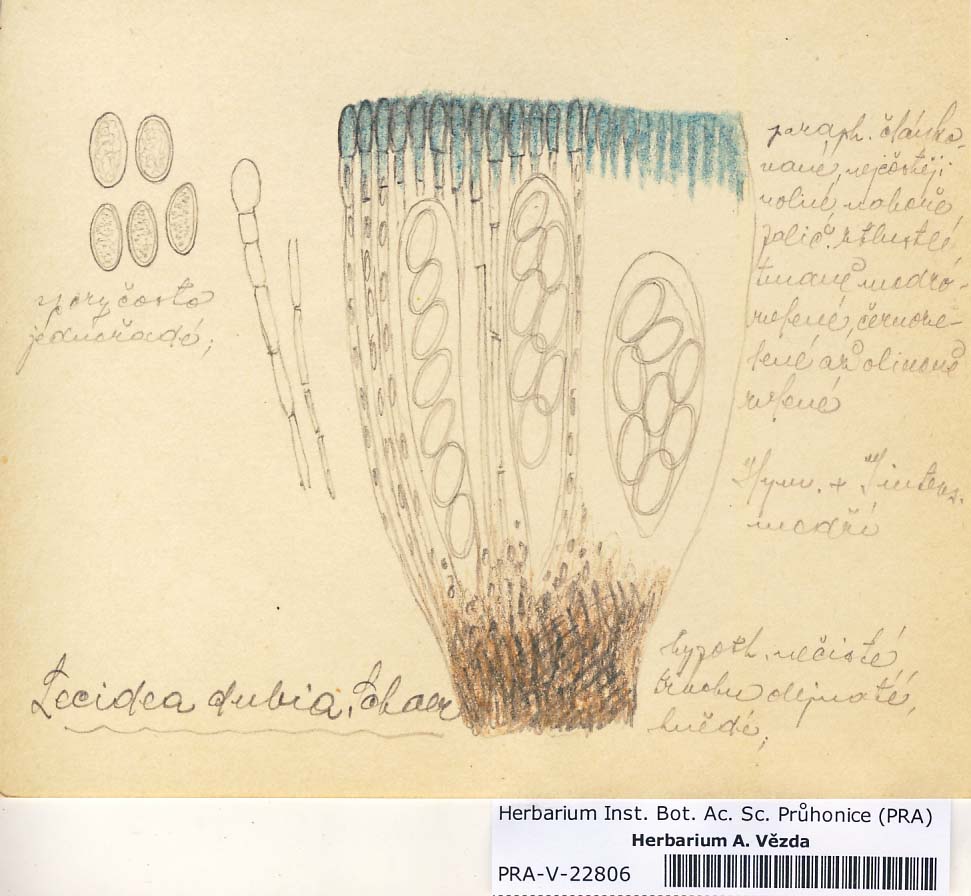 spory často
jednořadé;
paraph. článko-
vané, nejčastěji
volné nahoře
ztlustlé
tmavě modro-
zelené, černoze-
lené až olivově
zelené
Hym. + J intens.
modří
hypoth. nečistě
trochu olejnatě,
hnědé;
Lecidea dubia, Schaer
Herbarium Inst. Bot. Ac. Sc. Průhonice (PRA)
Herbarium A. Vězda
PRA-V-22806